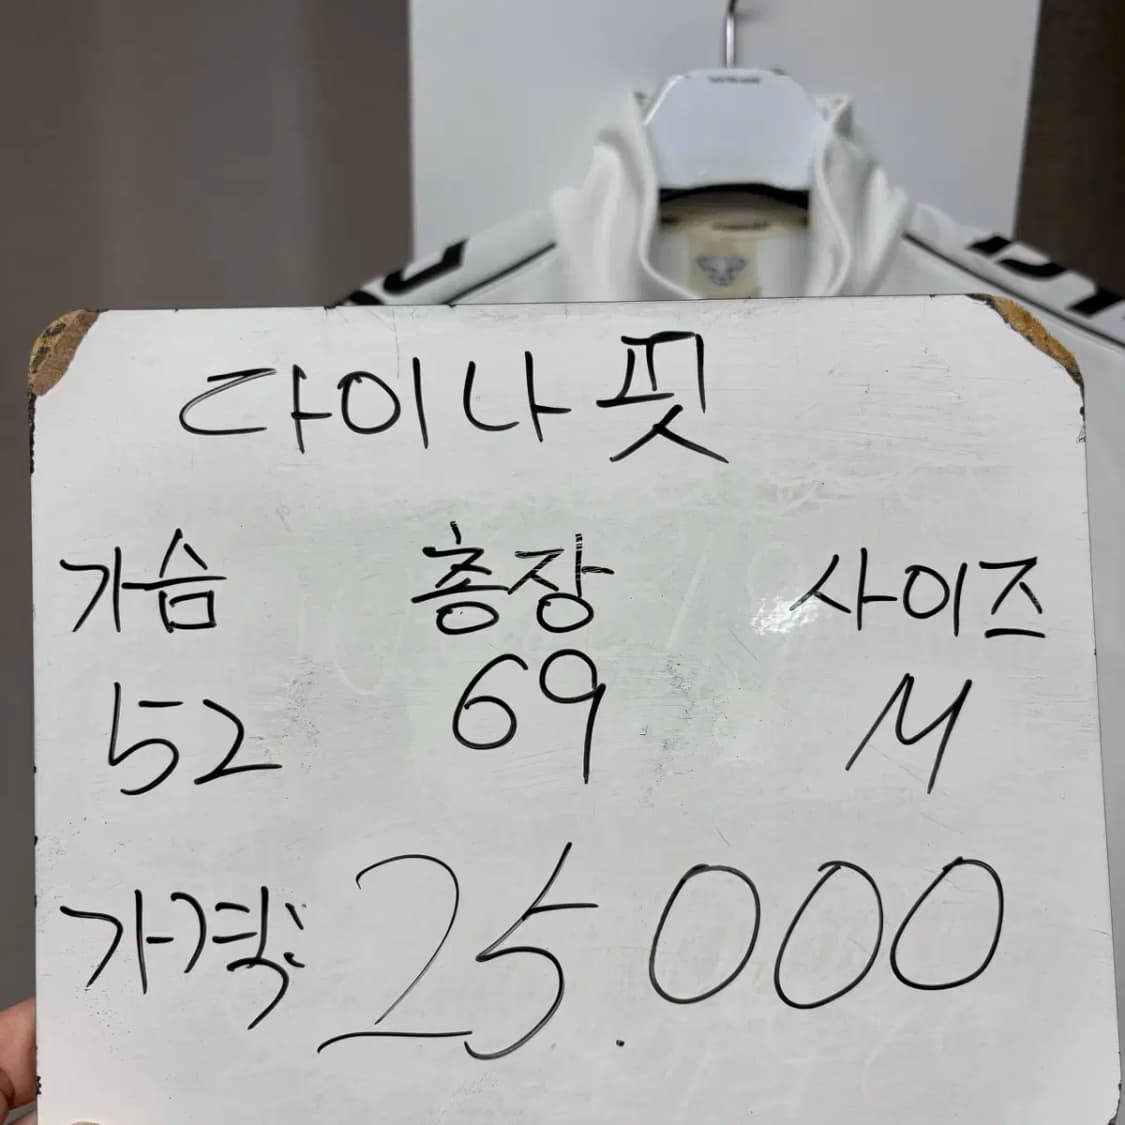 다이나핏
가슴 총장 사이즈
52 69 M
가격: 25.000